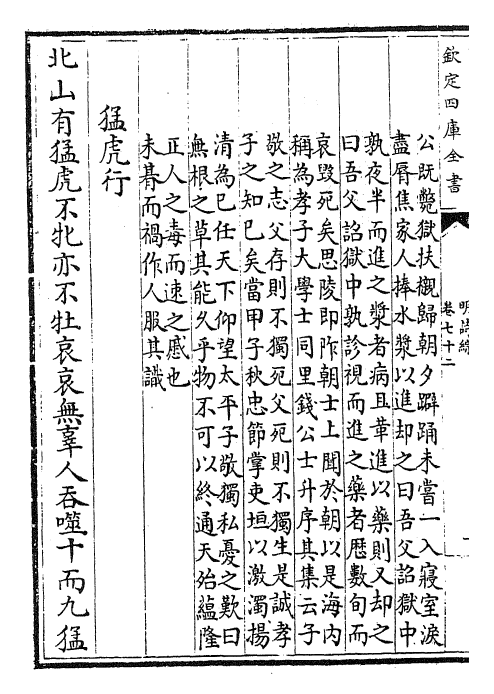 欽定四庫全書
明詩綜
卷七十二
公既斃獄扶櫬歸朝夕躃踊未嘗一入寢室淚
盡脣焦家人捧水漿以進却之曰吾父詔獄中
孰夜半而進之漿者病且革進以藥則又却之
曰吾父詔獄中孰診視而進之藥者歴數旬而
哀毀死矣思陵即阼朝士上聞於朝以是海内
稱為孝子大學士同里錢公士升序其集云子
敬之志父存則不獨死父死則不獨生是誠孝
子之知已矣當甲子秋忠節掌吏垣以激濁揚
清為已任天下仰望太平子敬獨私憂之歎曰
無根之草其能久乎物不可以終通天殆藴隆
正人之毒而速之慼也
未朞而禍作人服其識
猛虎行
北山有猛虎不牝亦不牡哀哀無辜人吞噬十而九猛